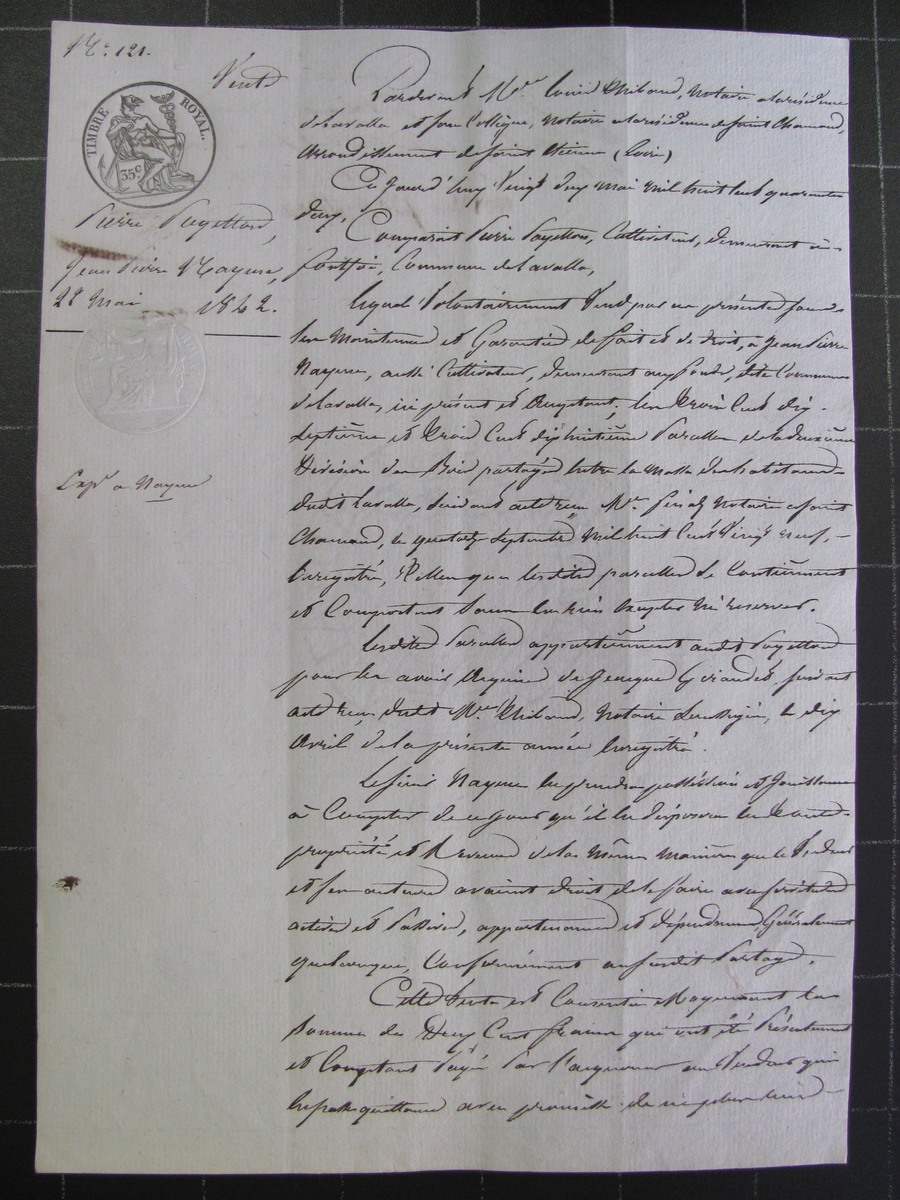 N.º 121.
Vente
TIMBRE ROYAL.
35 c
Pierre Payellon,
Jean Pierre Nayme,
22 Mai 1842.
Exp.on a Nayme
Pardevant M.tre Louis Thibaud, Notaire à la résidence
de Lavalla et son Collègue, Notaire à la résidence de Saint Chamond,
Arrondissement de Saint Etienne (Loire)
Ce Jourd'huy Vingt deux Mai mil huit cent quarante
deux,
Comparait Pierre Payellon, Cultivateur, demeurant à
Commune de Lavalla,
Lequel Volontairement Vend par ces présentes sous
les Maintenue et Garantie de fait et de droit, à Jean Pierre
Nayme, aussi Cultivateur, demeurant dite Commune
de Lavalla, ici présent et Acceptant; les Trois Cent dix-
Septième et Trois Cent dix huitième Parcelles de la deuxième
Division des Bois partagés Entre la Masse des habitants
dudit Lavalla, Suivant acte reçu M.e Notaire à Saint
Chamond, le quatorze Septembre Mil huit Cent Vingt neuf,
Enregistré, Telles que lesdites parcelles Se Contiennent
et Comportent Sans en rien Excepter Ni réserver.
Lesdites Parcelles appartiennent audit Payellon
pour les avoir Acquises de Jacques suivant
acte reçu dudit M.tre Thibaud, Notaire Soussigné, le dix
Avril de la présente année Enregistré.
Le Sieur Nayme En prendra possession et Jouissance
à Compter de ce Jour qu'il En disposera En toute
propriété et Revenus de la Même Manière que le Vendeur
et Ses auteurs avaient droit de le faire avec Servitudes
actives et Passives, appartenances et dépendances Généralement
quelconques, Conformément au Susdit Partage.
Cette Vente est Consentie Moyennant la
Somme de Deux Cent francs qui ont été Présentement
et Comptant Payés Par l'acquéreur au Vendeur qui
En passe quittance avec promesse de ne plus rien